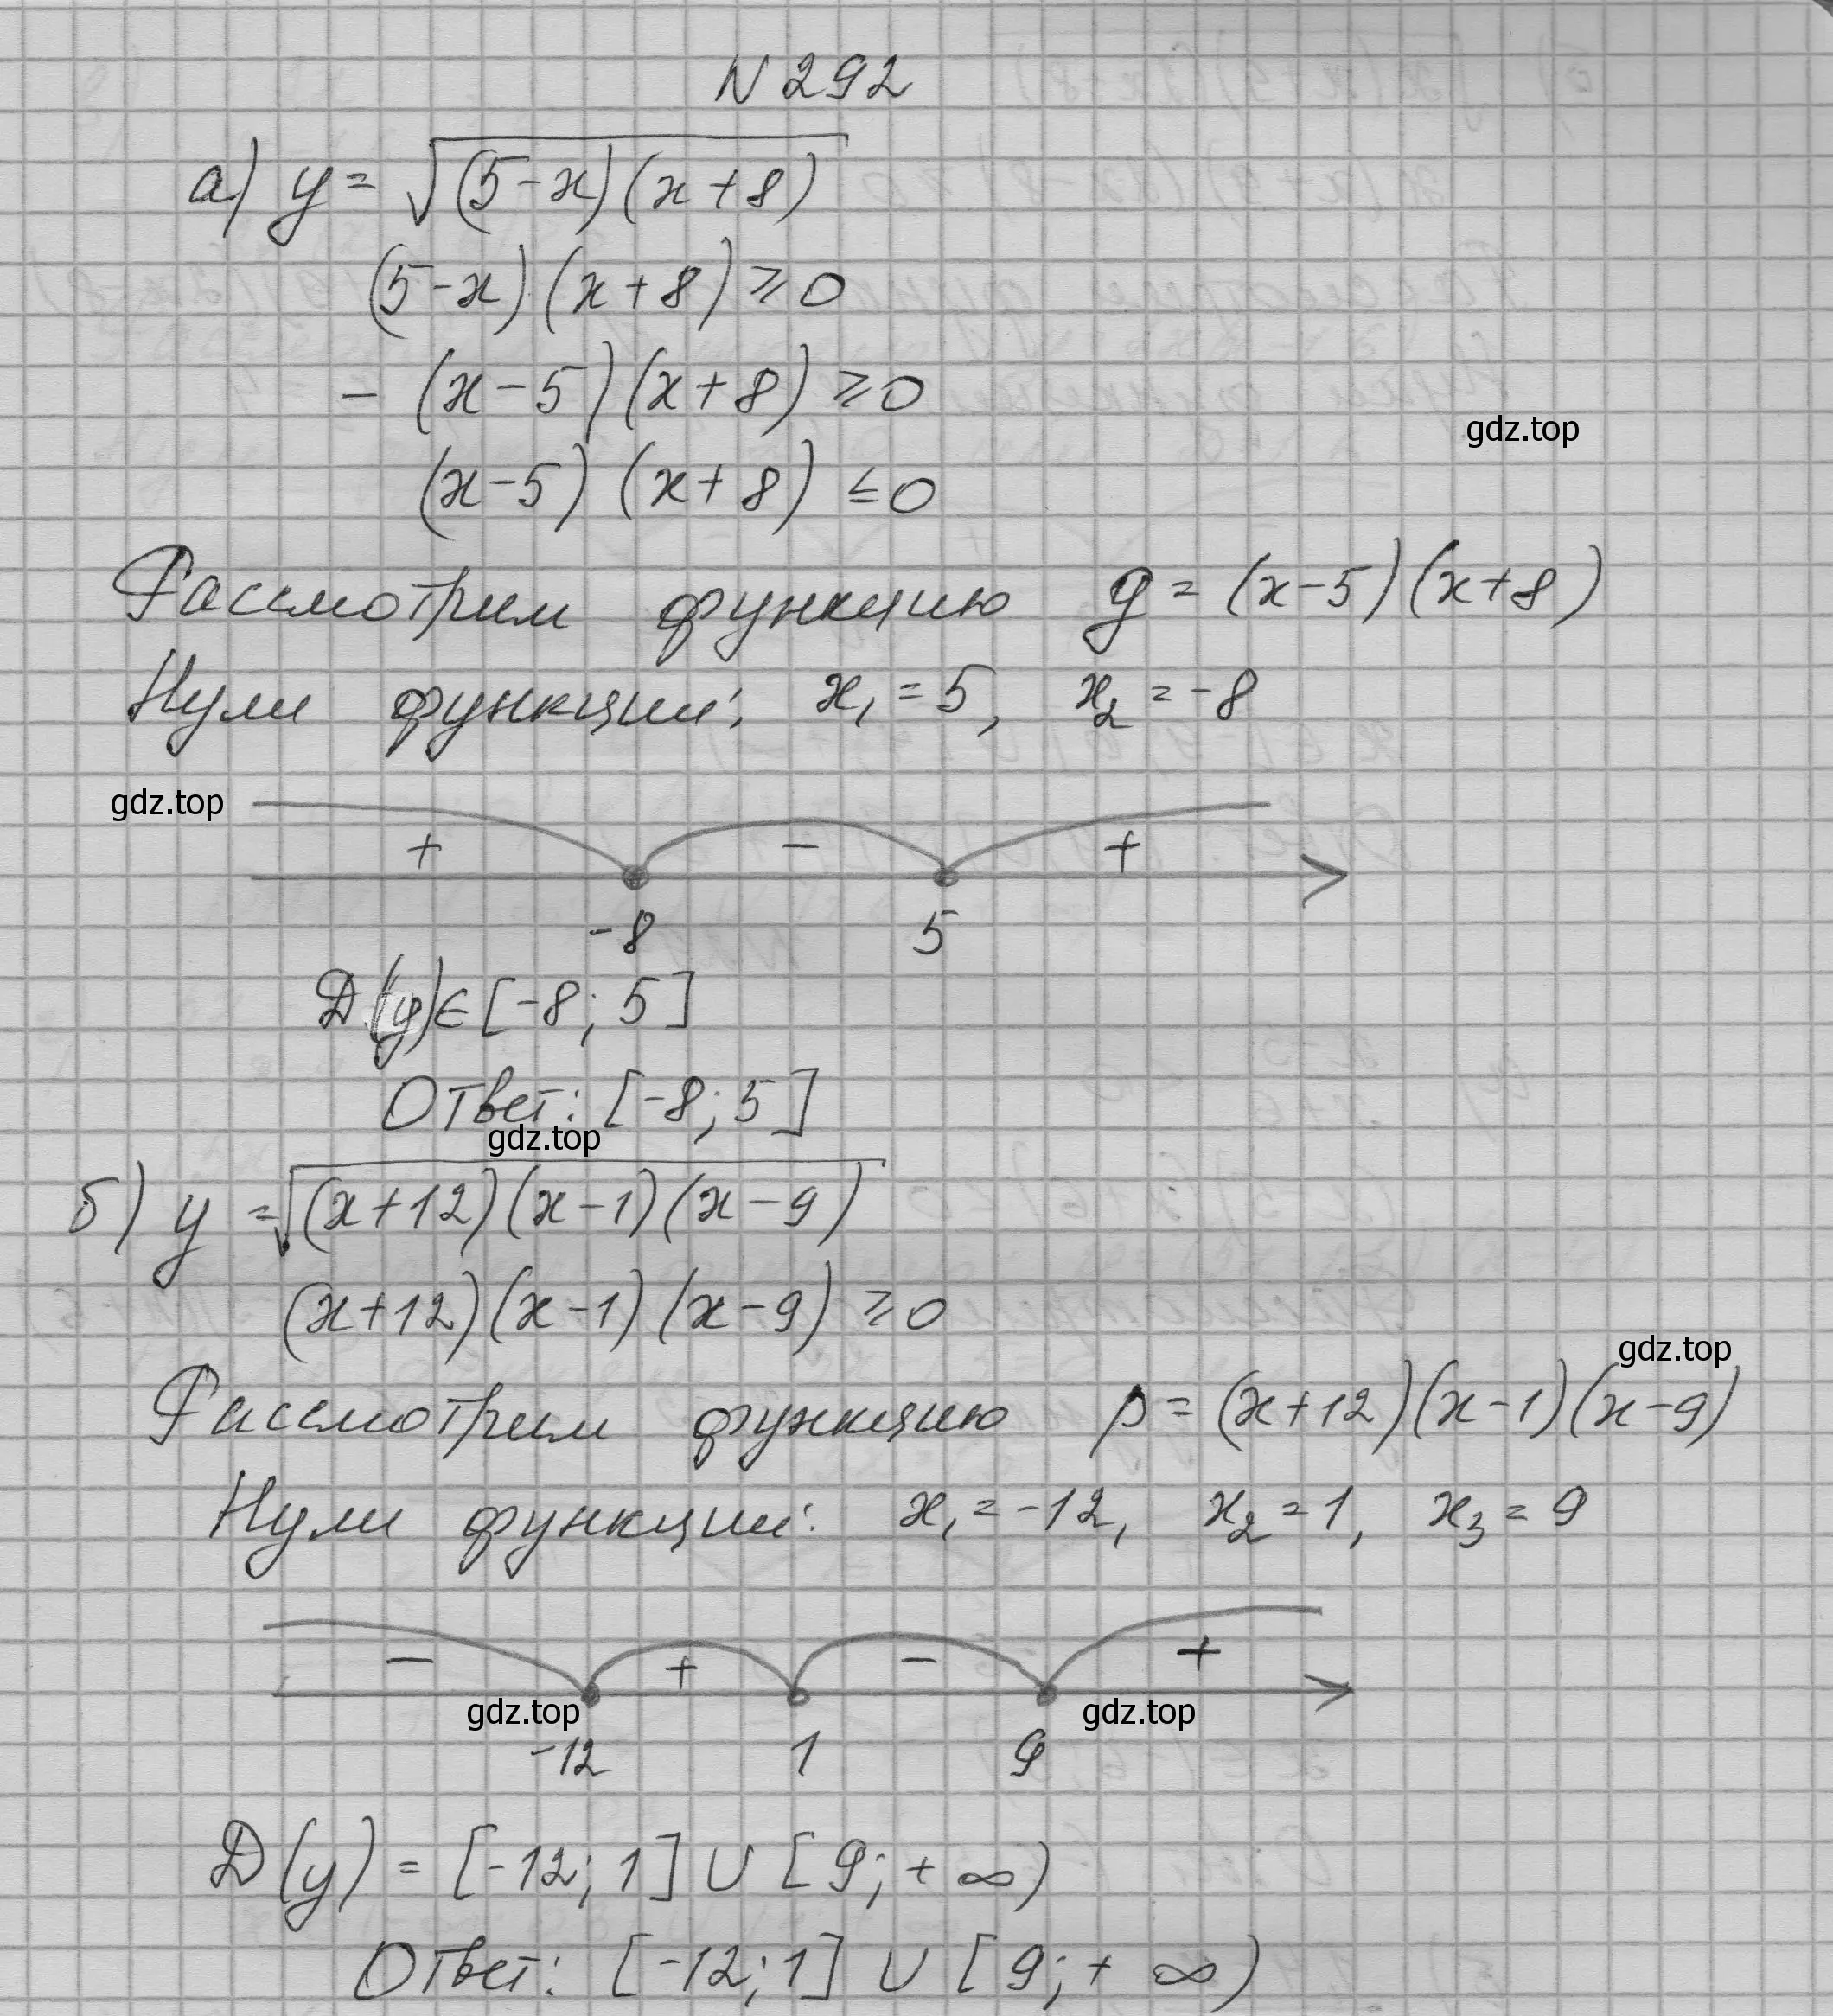 N 292
а) y = √(5-x)(x+8)
(5-x)(x+8) ≥ 0
- (x-5)(x+8) ≥ 0
gdz.top
(x-5)(x+8) ≤ 0
Рассмотрим функцию g = (x-5)(x+8)
Нули функции: x₁ = 5, x₂ = -8
gdz.top
+ - +
-8 5
D(y) ∈ [-8; 5]
Ответ: [-8; 5]
gdz.top
б) y = √(x+12)(x-1)(x-9)
(x+12)(x-1)(x-9) ≥ 0
gdz.top
Рассмотрим функцию p = (x+12)(x-1)(x-9)
Нули функции: x₁ = -12, x₂ = 1, x₃ = 9
- + - +
gdz.top gdz.top
-12 1 9
D(y) = [-12; 1] ∪ [9; +∞)
Ответ: [-12; 1] ∪ [9; +∞)